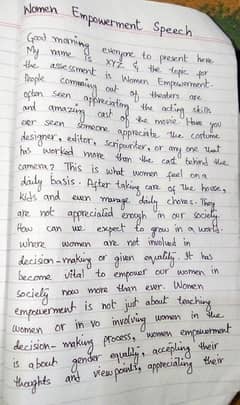 Women Empowerment Speech
Good morning everyone to present here
My name is XYZ & the topic for
the assessment is Women Empowerment.
People comming out of theaters are
often seen appreciating the acting skills
and amazing cast of the movie. Have you
ever seen someone appreciate the costume
designer, editor, scripwriter, or any one that
has worked more than the cast behind the
camera? This is what women feel on a
daily basis. After taking care of the house,
kids and even manage daily chores. They
are not appreciated enough in our society.
How can we expect to grow in a world.
where women are not involved in
decision-making or given equality. It has
become vital to empower our women in
society now more than ever. Women
empowerment is not just about teaching
women or in vo involving women in the
decision-making process, women empowerment
is about gender equality, accepting their
thoughts and viewpoints, appreciating their